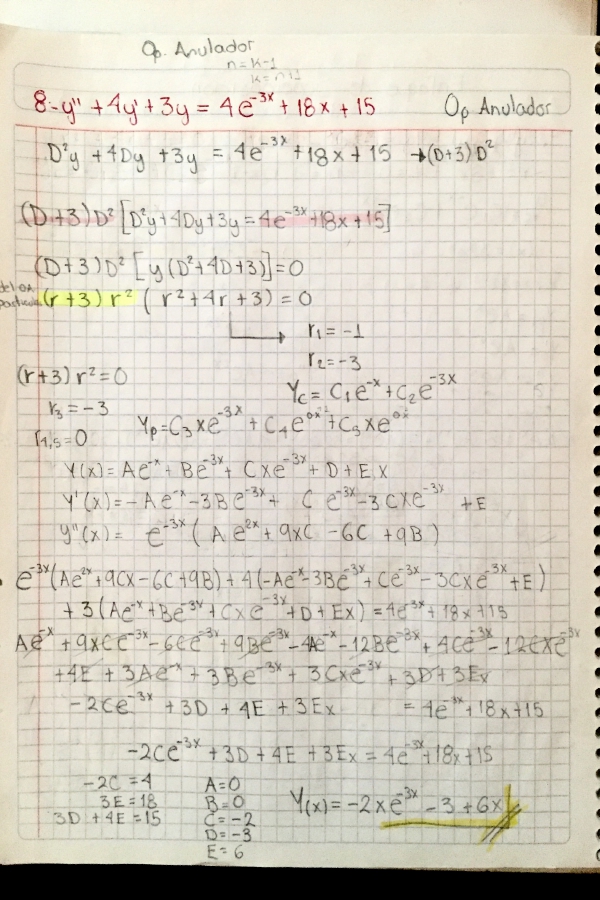 Op. Anulador
n=k-1
k=n+1
8.- y'' + 4y' + 3y = 4e^-3x + 18x + 15 Op Anulador
D²y + 4Dy + 3y = 4e^-3x + 18x + 15 → (D+3)D²
(D+3)D² [D²y+4Dy+3y = 4e^-3x +18x+15]
(D+3)D² [ y(D²+4D+3)] = 0
del OA
(r+3) r² ( r²+4r+3) = 0
r₁ = -1
r₂ = -3
(r+3) r² = 0
Yc = C₁e^-x + C₂e^-3x
r₃ = -3
Yp = C₃xe^-3x + C₄e^0x + C₅xe^0x
r₄,₅ = 0
Y(x) = Ae^-x + Be^-3x + Cxe^-3x + D + Ex
Y'(x) = -Ae^-x - 3Be^-3x + C e^-3x - 3Cxe^-3x + E
y''(x) = e^-3x ( A e^2x + 9xC - 6C + 9B )
e^-3x (Ae^2x + 9Cx - 6C + 9B) + 4(-Ae^-x - 3Be^-3x + Ce^-3x - 3Cxe^-3x + E)
+ 3(Ae^-x + Be^-3x + Cxe^-3x + D + Ex) = 4e^-3x + 18x + 15
Ae^-x + 9xCe^-3x - 6Ce^-3x + 9Be^-3x - 4Ae^-x - 12Be^-3x + 4Ce^-3x - 12Cxe^-3x
+ 4E + 3Ae^-x + 3Be^-3x + 3Cxe^-3x + 3D + 3Ex
- 2Ce^-3x + 3D + 4E + 3Ex = 4e^-3x + 18x + 15
-2Ce^-3x + 3D + 4E + 3Ex = 4e^-3x + 18x + 15
-2C = 4 A = 0
3E = 18 B = 0
3D + 4E = 15 C = -2
Y(x) = -2xe^-3x - 3 + 6x
D = -3
E = 6